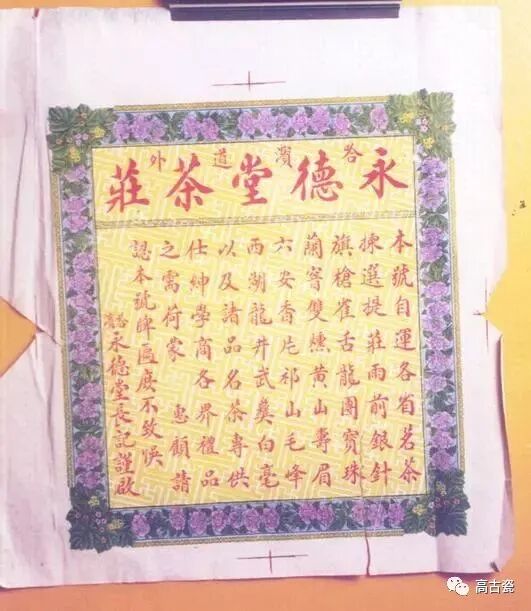 哈濱道外
永德堂茶莊
本號自運各省茗茶
揀選提莊雨前銀針
旗槍雀舌龍團寶珠
蘭窨雙燻黃山壽眉
六安香片祁山毛峰
西湖龍井武彝白毫
以及諸品名茶專供
仕紳學商各界禮品
之需荷蒙 惠顧請
認本號牌匾庶不致悞
哈濱永德堂長記謹啟
高古瓷